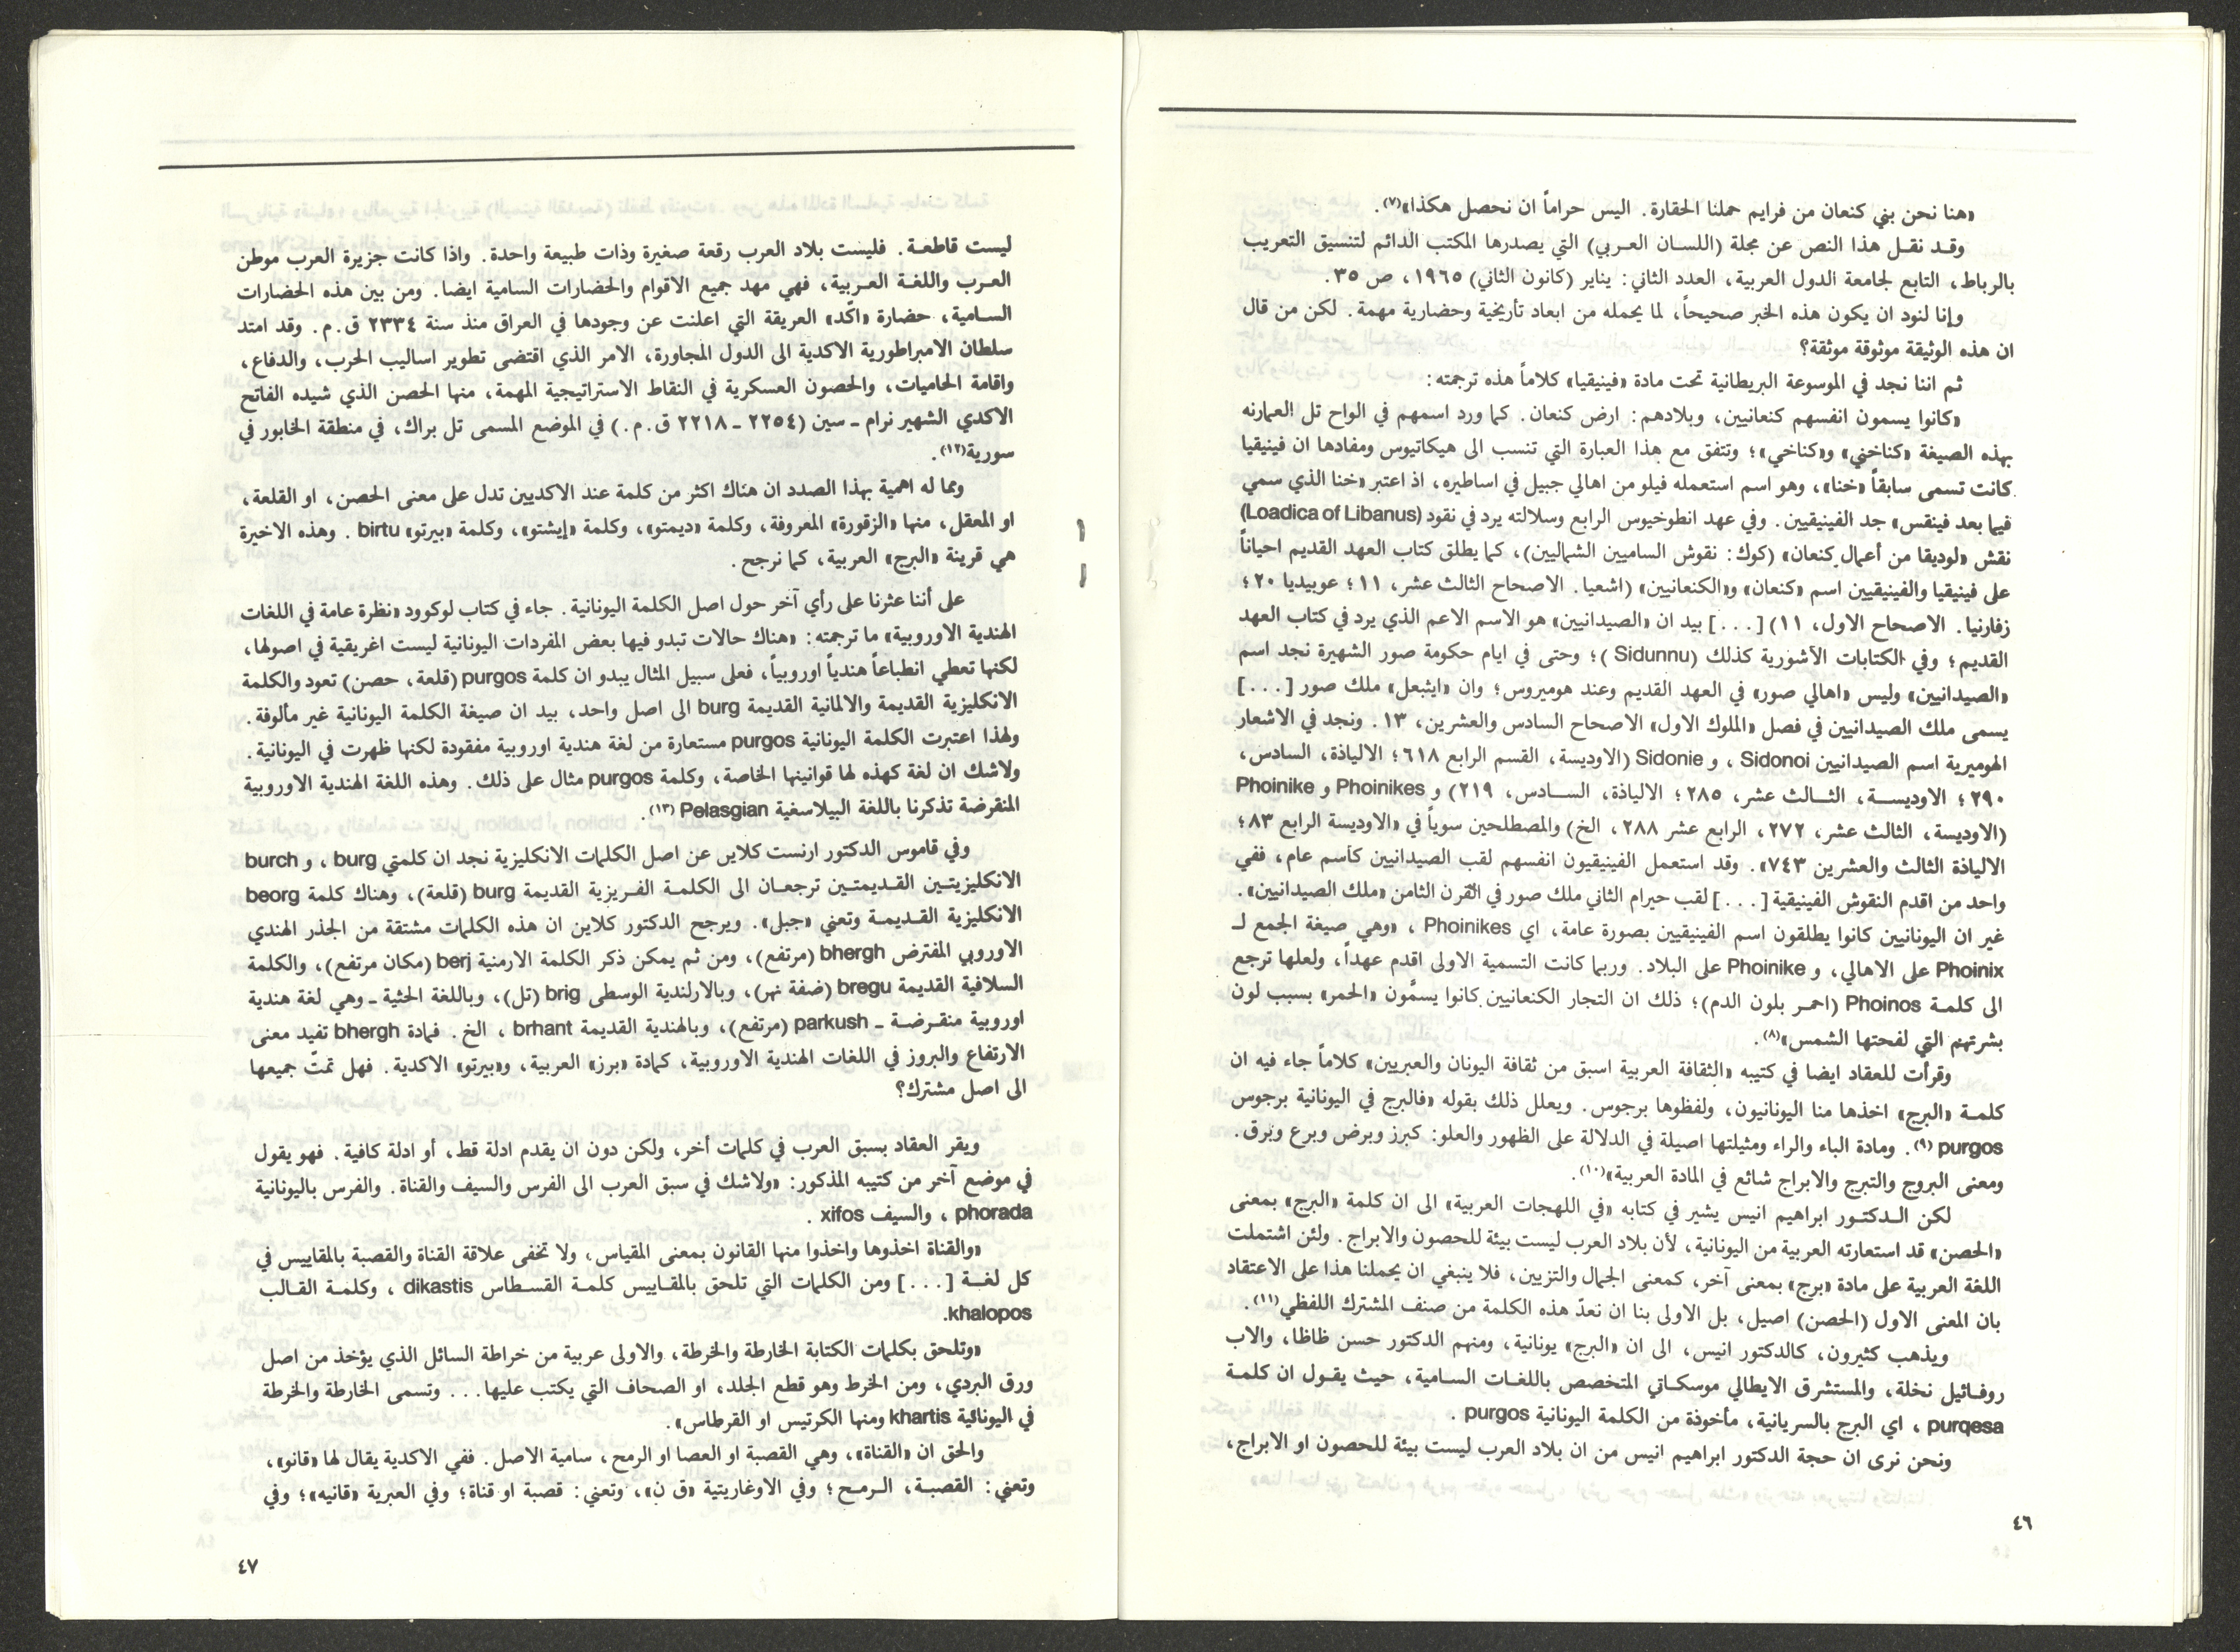 «هنا نحن بني كنعان من فرايم حملنا الحقارة. اليس حراماً ان نحصل هكذا»(٧).
وقد نقل هذا النص عن مجلة (اللسان العربي) التي يصدرها المكتب الدائم لتنسيق التعريب
بالرباط، التابع لجامعة الدول العربية، العدد الثاني: يناير (كانون الثاني) ١٩٦٥، ص ٣٥.
وإنا لنود ان يكون هذه الخبر صحيحاً، لما يحمله من ابعاد تأريخية وحضارية مهمة. لكن من قال
ان هذه الوثيقة موثوقة موثقة؟
ثم اننا نجد في الموسوعة البريطانية تحت مادة «فينيقيا» كلاماً هذه ترجمته:
«كانوا يسمون انفسهم كنعانيين، وبلادهم: ارض كنعان. كما ورد اسمهم في الواح تل العمارنه
بهذه الصيغة «كناخني» و«كناخي»؛ وتتفق مع هذا العبارة التي تنسب الى هيكاتيوس ومفادها ان فينيقيا
كانت تسمى سابقاً «خنا»، وهو اسم استعمله فيلو من اهالي جبيل في اساطيره، اذ اعتبر «خنا الذي سمي
فيما بعد فينقس» جد الفينيقيين. وفي عهد انطوخيوس الرابع وسلالته يرد في نقود (Loadica of Libanus)
نقش «لوديقا من أعمال كنعان» (كوك: نقوش الساميين الشماليين)، كما يطلق كتاب العهد القديم احياناً
على فينيقيا والفينيقيين اسم «كنعان» و«الكنعانيين» (اشعيا. الاصحاح الثالث عشر، ١١؛ عوبيديا ٢٠؛
زفارنيا. الاصحاح الاول، ١١) [...] بيد ان «الصيدانيين» هو الاسم الاعم الذي يرد في كتاب العهد
القديم؛ وفي الكتابات الآشورية كذلك (Sidunnu)؛ وحتى في ايام حكومة صور الشهيرة نجد اسم
«الصيدانيين» وليس «اهالي صور» في العهد القديم وعند هوميروس؛ وان «ايثبعل» ملك صور [...]
يسمى ملك الصيدانيين في فصل «الملوك الاول» الاصحاح السادس والعشرين، ١٣. ونجد في الاشعار
الهوميرية اسم الصيدانيين Sidonoi ، و Sidonie (الاوديسة، القسم الرابع ٦١٨؛ الالياذة، السادس،
٢٩٠؛ الاوديسة، الثالث عشر، ٢٨٥؛ الالياذة، السادس، ٢١٩) و Phoinikes و Phoinike
(الاوديسة، الثالث عشر، ٢٧٢، الرابع عشر ٢٨٨، الخ) والمصطلحين سوياً في «الاوديسة الرابع ٨٣؛
الالياذة الثالث والعشرين ٧٤٣». وقد استعمل الفينيقيون انفسهم لقب الصيدانيين كأسم عام، ففي
واحد من اقدم النقوش الفينيقية [...] لقب حيرام الثاني ملك صور في القرن الثامن «ملك الصيدانيين».
غير ان اليونانيين كانوا يطلقون اسم الفينيقيين بصورة عامة، اي Phoinikes ، «وهي صيغة الجمع لـ
Phoinix على الاهالي، و Phoinike على البلاد. وربما كانت التسمية الاولى اقدم عهداً، ولعلها ترجع
الى كلمة Phoinos (احمر بلون الدم)؛ ذلك ان التجار الكنعانيين كانوا يسمّون «الحمر» بسبب لون
بشرتهم التي لفحتها الشمس»(٨).
وقرأت للعقاد ايضا في كتيبه «الثقافة العربية اسبق من ثقافة اليونان والعبريين» كلاماً جاء فيه ان
كلمة «البرج» اخذها منا اليونانيون، ولفظوها برجوس. ويعلل ذلك بقوله «فالبرج في اليونانية برجوس
purgos (٩). ومادة الباء والراء ومثيلتها اصيلة في الدلالة على الظهور والعلو: كبرز وبرض وبرع وبرق.
ومعنى البروج والتبرج والابراج شائع في المادة العربية»(١٠).
لكن الدكتور ابراهيم انيس يشير في كتابه «في اللهجات العربية» الى ان كلمة «البرج» بمعنى
«الحصن» قد استعارته العربية من اليونانية، لأن بلاد العرب ليست بيئة للحصون والابراج. ولئن اشتملت
اللغة العربية على مادة «برج» بمعنى آخر، كمعنى الجمال والتزيين، فلا ينبغي ان يحملنا هذا على الاعتقاد
بان المعنى الاول (الحصن) اصيل، بل الاولى بنا ان نعدّ هذه الكلمة من صنف المشترك اللفظي(١١).
ويذهب كثيرون، كالدكتور انيس، الى ان «البرج» يونانية، ومنهم الدكتور حسن ظاظا، والاب
روفائيل نخلة، والمستشرق الايطالي موسكاتي المتخصص باللغات السامية، حيث يقول ان كلمة
purqesa ، اي البرج بالسريانية، مأخوذة من الكلمة اليونانية purgos .
ونحن نرى ان حجة الدكتور ابراهيم انيس من ان بلاد العرب ليست بيئة للحصون او الابراج،
٤٦
ليست قاطعة. فليست بلاد العرب رقعة صغيرة وذات طبيعة واحدة. واذا كانت جزيرة العرب موطن
العرب واللغة العربية، فهي مهد جميع الاقوام والحضارات السامية ايضا. ومن بين هذه الحضارات
السامية، حضارة «اكّد» العريقة التي اعلنت عن وجودها في العراق منذ سنة ٢٣٣٤ ق.م. وقد امتد
سلطان الامبراطورية الاكدية الى الدول المجاورة، الامر الذي اقتضى تطوير اساليب الحرب، والدفاع،
واقامة الحاميات، والحصون العسكرية في النقاط الاستراتيجية المهمة، منها الحصن الذي شيده الفاتح
الاكدي الشهير نرام ـ سين (٢٢٥٤ ـ ٢٢١٨ ق.م.) في الموضع المسمى تل براك، في منطقة الخابور في
سورية(١٢).
ومما له اهمية بهذا الصدد ان هناك اكثر من كلمة عند الاكديين تدل على معنى الحصن، او القلعة،
او المعقل، منها «الزقورة» المعروفة، وكلمة «ديمتو»، وكلمة «إيشتو»، وكلمة «بيرتو» birtu . وهذه الاخيرة
هي قرينة «البرج» العربية، كما نرجح.
على أننا عثرنا على رأي آخر حول اصل الكلمة اليونانية. جاء في كتاب لوكوود «نظرة عامة في اللغات
الهندية الاوروبية» ما ترجمته: «هناك حالات تبدو فيها بعض المفردات اليونانية ليست اغريقية في اصولها،
لكنها تعطي انطباعاً هندياً اوروبياً، فعلى سبيل المثال يبدو ان كلمة purgos (قلعة، حصن) تعود والكلمة
الانكليزية القديمة والالمانية القديمة burg الى اصل واحد، بيد ان صيغة الكلمة اليونانية غير مألوفة.
ولهذا اعتبرت الكلمة اليونانية purgos مستعارة من لغة هندية اوروبية مفقودة لكنها ظهرت في اليونانية.
ولاشك ان لغة كهذه لها قوانينها الخاصة، وكلمة purgos مثال على ذلك. وهذه اللغة الهندية الاوروبية
المنقرضة تذكرنا باللغة البيلاسغية Pelasgian (١٣).
وفي قاموس الدكتور ارنست كلاين عن اصل الكلمات الانكليزية نجد ان كلمتي burg ، و burch
الانكليزيتين القديمتين ترجعان الى الكلمة الفريزية القديمة burg (قلعة)، وهناك كلمة beorg
الانكليزية القديمة وتعني «جبل». ويرجح الدكتور كلاين ان هذه الكلمات مشتقة من الجذر الهندي
الاوروبي المفترض bhergh (مرتفع)، ومن ثم يمكن ذكر الكلمة الارمنية berj (مكان مرتفع)، والكلمة
السلافية القديمة bregu (ضفة نهر)، وبالارلندية الوسطى brig (تل)، وباللغة الحثية ـ وهي لغة هندية
اوروبية منقرضة ـ parkush (مرتفع)، وبالهندية القديمة brhant ، الخ. فمادة bhergh تفيد معنى
الارتفاع والبروز في اللغات الهندية الاوروبية، كمادة «برز» العربية، و«بيرتو» الاكدية. فهل تمتّ جميعها
الى اصل مشترك؟
ويقر العقاد بسبق العرب في كلمات أخر، ولكن دون ان يقدم ادلة قط، أو ادلة كافية. فهو يقول
في موضع آخر من كتيبه المذكور: «ولاشك في سبق العرب الى الفرس والسيف والقناة. والفرس باليونانية
phorada ، والسيف xifos .
«والقناة اخذوها واخذوا منها القانون بمعنى المقياس، ولا تخفى علاقة القناة والقصبة بالمقاييس في
كل لغة [...] ومن الكلمات التي تلحق بالمقاييس كلمة القسطاس dikastis ، وكلمة القالب
khalopos.
«وتلحق بكلمات الكتابة الخارطة والخرطة، والاولى عربية من خراطة السائل الذي يؤخذ من اصل
ورق البردي، ومن الخرط وهو قطع الجلد، او الصحاف التي يكتب عليها... وتسمى الخارطة والخرطة
في اليونانية khartis ومنها الكرتيس او القرطاس».
والحق ان «القناة»، وهي القصبة او العصا او الرمح، سامية الاصل. ففي الاكدية يقال لها «قانو»،
وتعني: القصبة، الرمح؛ وفي الاوغاريتية «ق ن»، وتعني: قصبة او قناة؛ وفي العبرية «قانيه»؛ وفي
٤٧